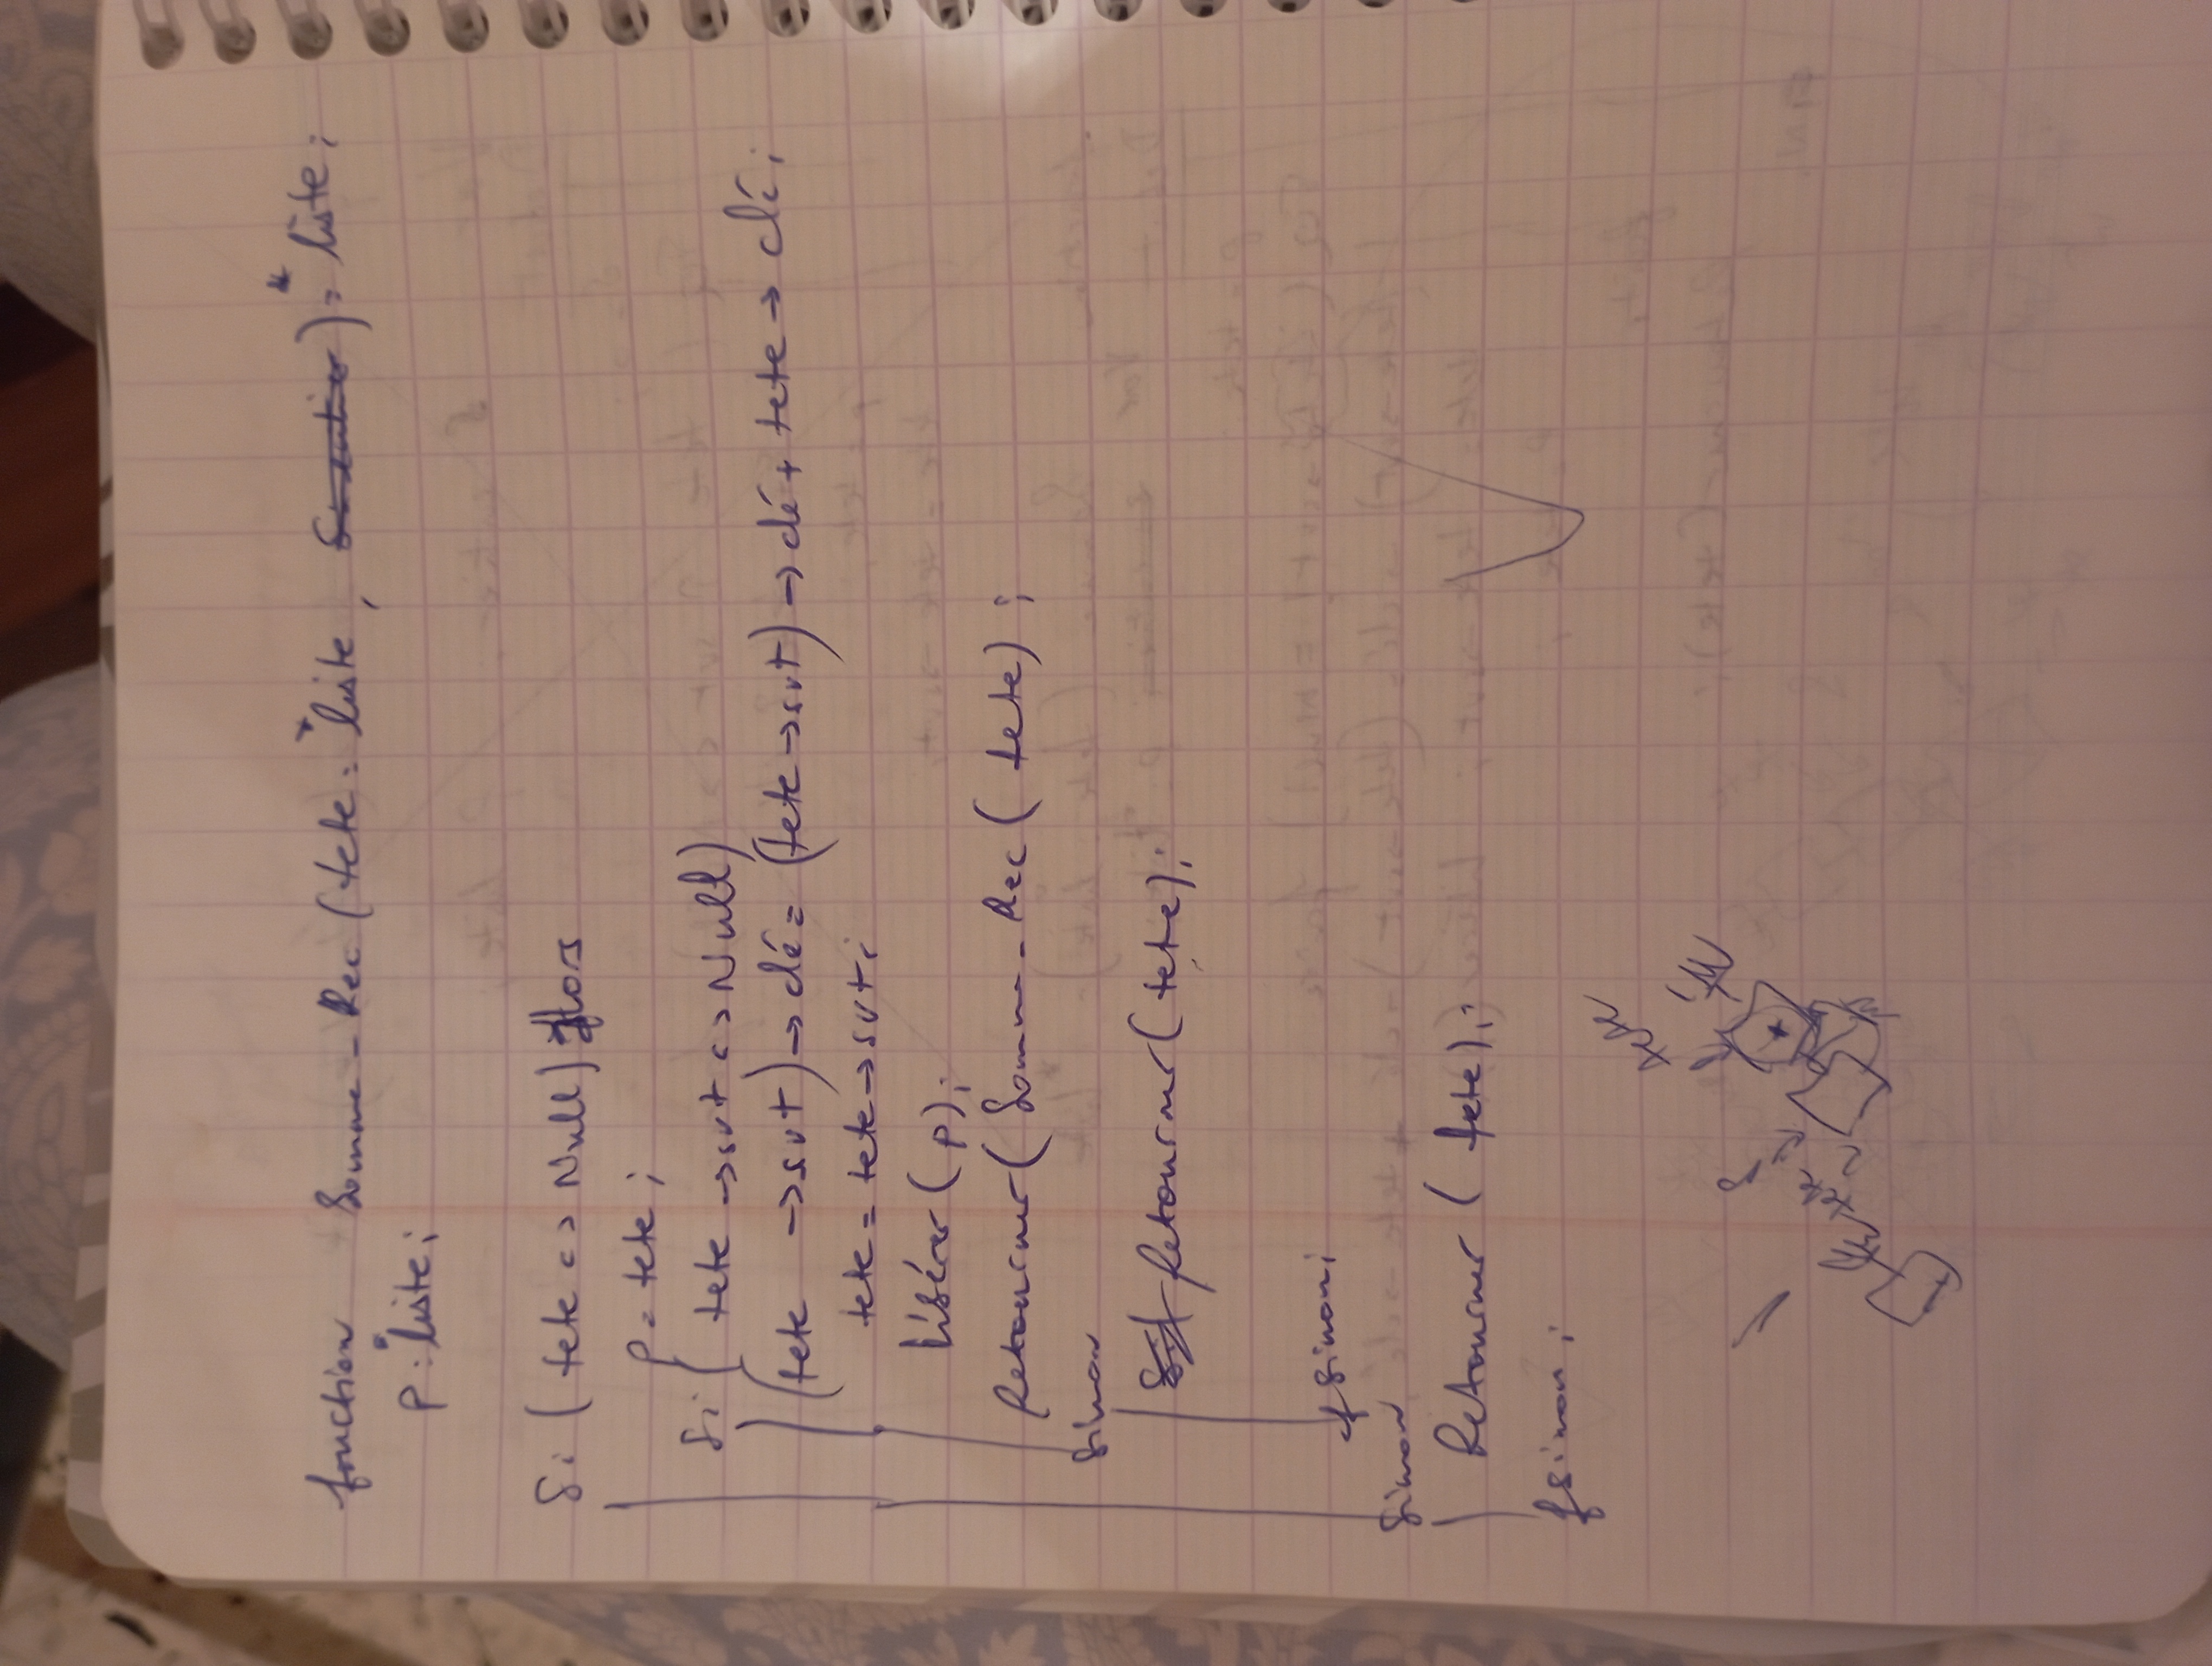 fonction Somme-Rec (tete : *liste , ) : *liste ;
p : *liste ;
Si ( tete <> Null) Alors
p = tete ;
Si ( tete → svt <> Null)
(tete → svt) → clé = (tete → svt) → clé + tete → clé ;
tete = tete → svt ;
libérer ( p) ;
Retourner ( Somme-Rec ( tete) ;
Sinon
Retourner ( tete) ;
fsinon ;
Sinon
Retourner ( tete) ;
fsinon ;
tete
P
tete